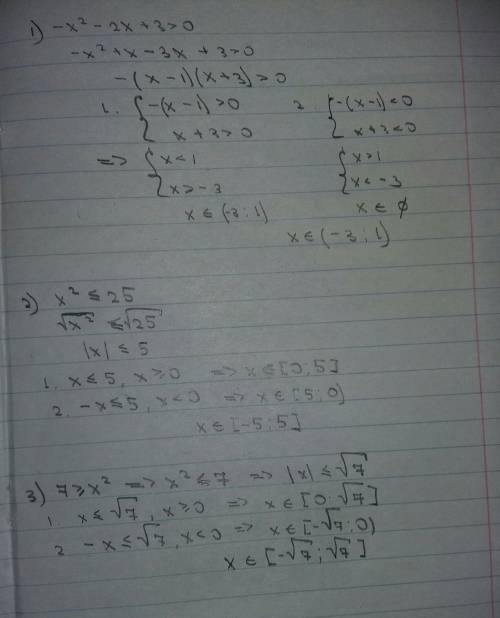 1) -x² - 2x + 3 > 0
-x² + x - 3x + 3 > 0
-(x - 1)(x + 3) > 0
1. { -(x - 1) > 0
x + 3 > 0
=> { x < 1
x > -3
x ∈ (-3; 1)
2. { -(x - 1) < 0
x + 3 < 0
{ x > 1
x < -3
x ∈ ∅
x ∈ (-3; 1)
2) x² ≤ 25
√x² ≤ √25
|x| ≤ 5
1. x ≤ 5, x ≥ 0 => x ∈ [0; 5]
2. -x ≤ 5, x < 0 => x ∈ [5; 0)
x ∈ [-5; 5]
3) 7 ≥ x² => x² ≤ 7 => |x| ≤ √7
1. x ≤ √7, x ≥ 0 => x ∈ [0; √7]
2. -x ≤ √7, x < 0 => x ∈ [-√7; 0)
x ∈ [-√7; √7]